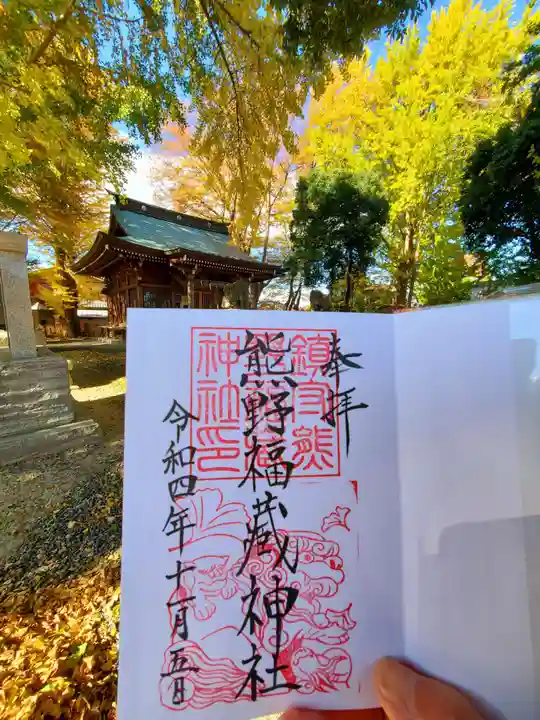 奉拝
熊野福蔵神社
令和四年十一月五日
鎮守熊
神社印